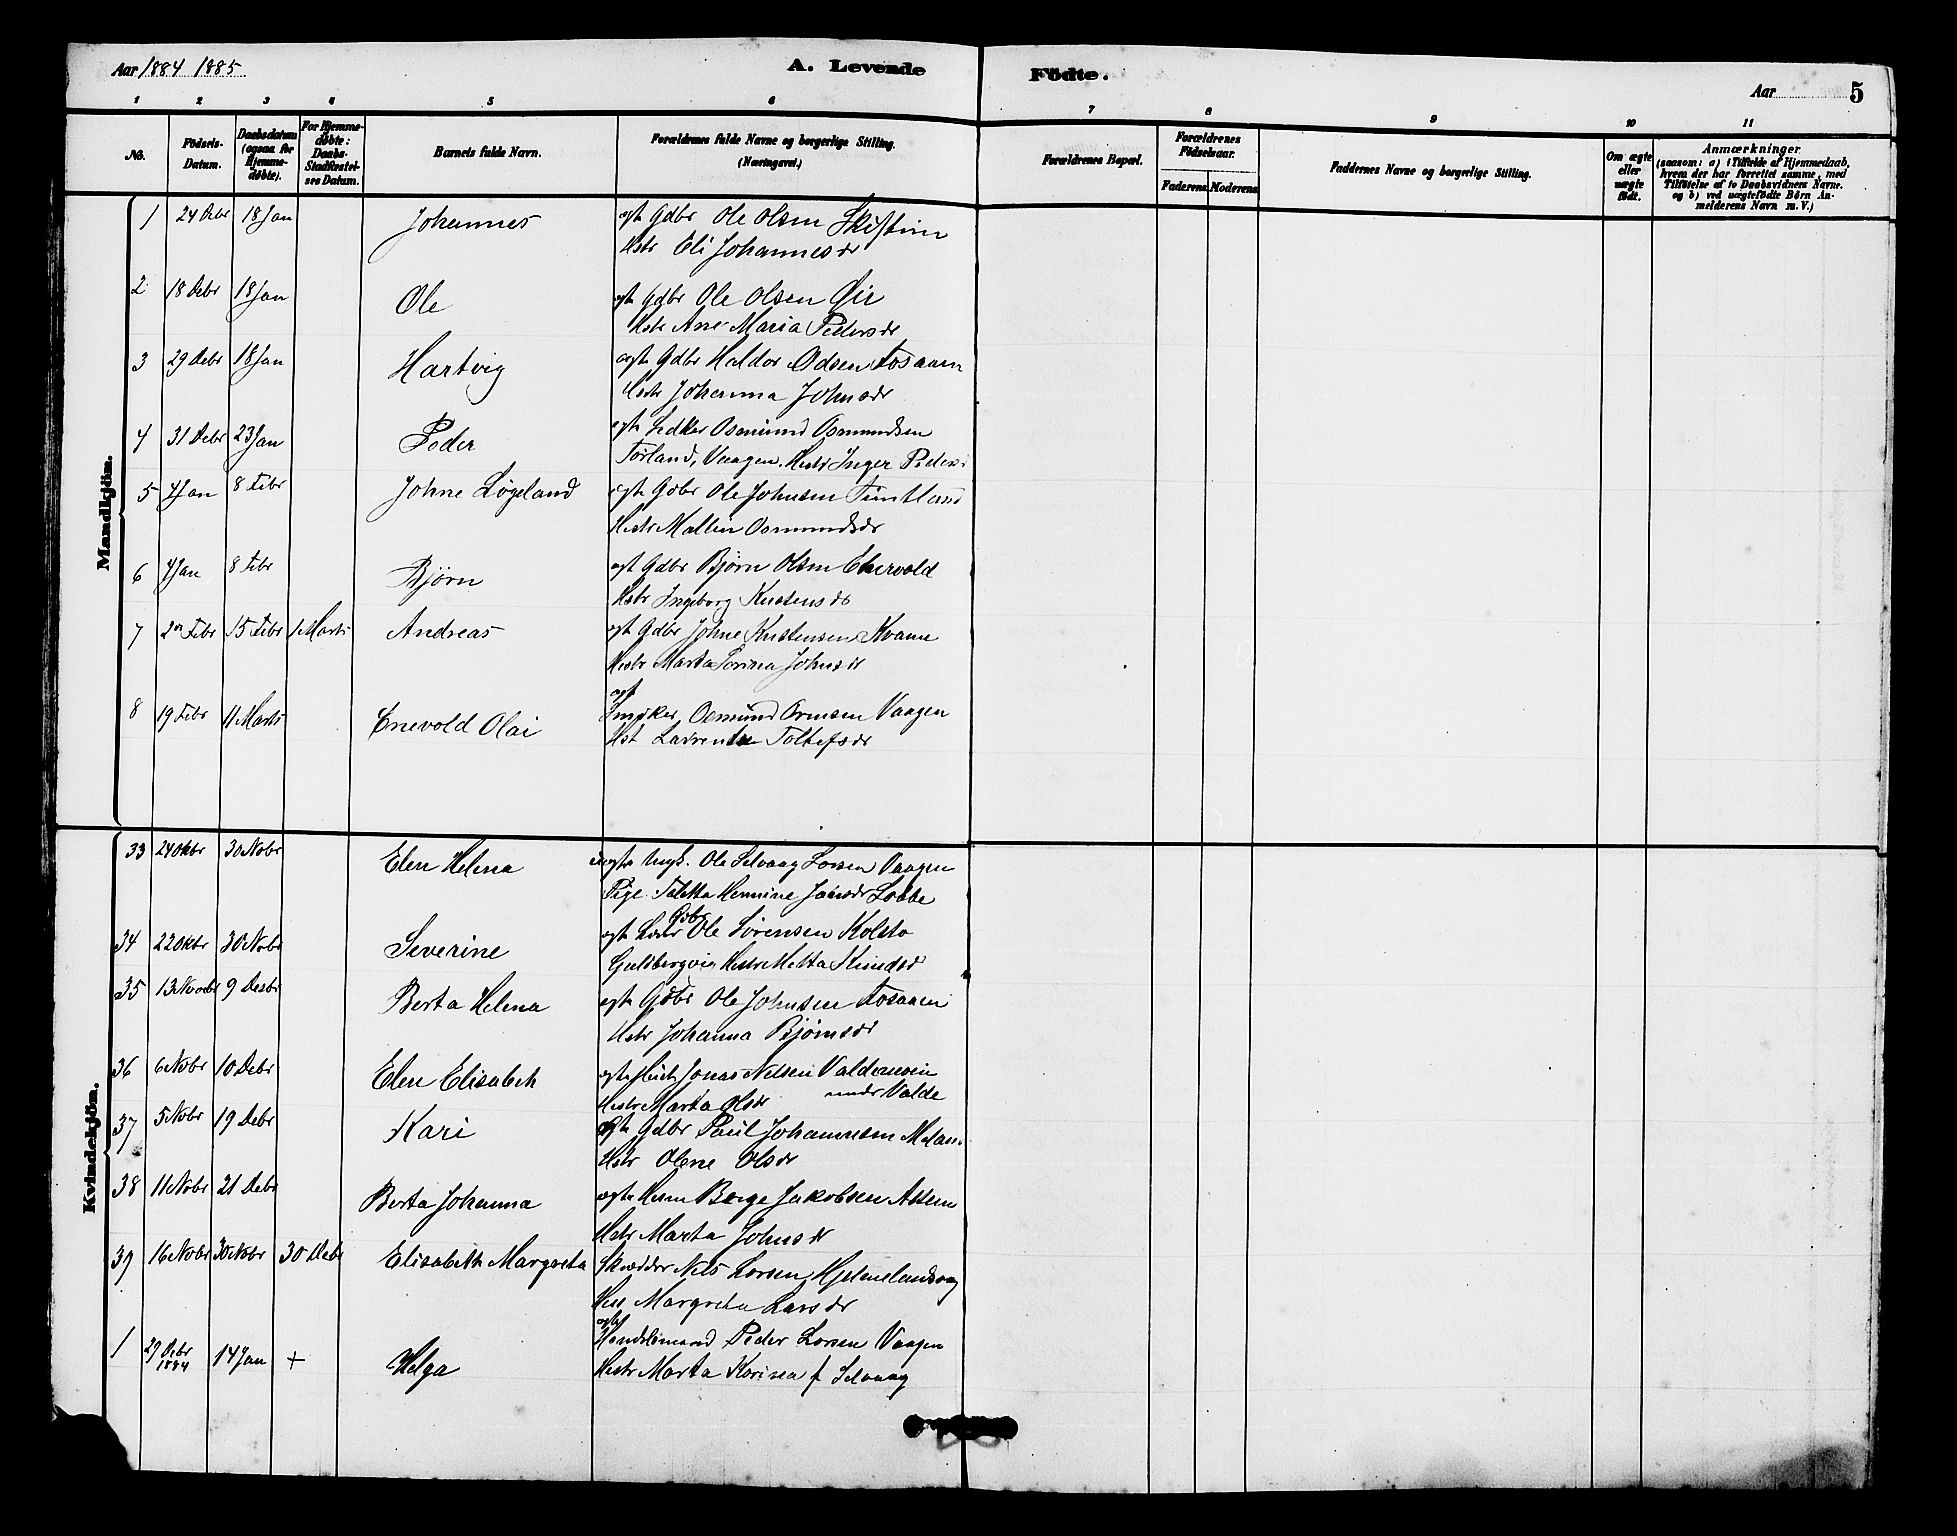 Aar 1884 1885
A. Levende Födte.
Aar 5
1 2 3 4 5 6 7 8 9 10 11
No.
Födsels-Datum.
Daabsdatum (ogsaa for Hjemme-döbte).
For Hjemme-döbte: Daabs-Stadfæstel-ses Datum.
Barnets fulde Navn.
Forældrenes fulde Navne og borgerlige Stilling. (Næringsvei.)
Forældrenes Bopæl.
Forældrenes Födselsaar.
Faderens. Moderens.
Faddernes Navne og borgerlige Stilling.
Om ægte eller uægte födt.
Anmærkninger
(saasom: a) i Tilfælde af Hjemmedaab, hvem der har forrettet samme, med Tilföielse af to Daabsvidners Navne. og b) ved uægtefödte Börn An-melderens Navn m. V.)
Mandkjön.
1 24 Debr 18 Jan Johannes ægt Gdbr Ole Olsen
Hstr Eli Johannesdr
2 18 Debr 18 Jan Ole ægt Gdbr Ole Olsen
Hstr Ane Maria Pedersdr
3 29 Debr 18 Jan Hartvig ægte Gdbr Haldor Odsen Fosaaen
Hstr Johanna Johnsdr
4 31 Debr 23 Jan Peder ægt Osmund Osmundsen
Törland, Vaagen. Hustr Inger Peders
5 4 Jan 8 Febr Johne Løgeland ægte Gdbr Ole Johnsen
Hustr Mallin Osmundsdr
6 4 Jan 8 Febr Bjørn ægt Gdbr Bjørn Olsen Ehervold
Hstr Ingeborg Knutsensdr
7 2 Febr 15 Febr 1 Marts Andreas ægt Gdbr Johne Kristensen Kvame
Hustr Marta Torina Johnsdr
8 19 Febr 11 Marts Enevold Olai ægt
Osmund Ormsen Vaagen
Hst Laurentse Toltefsdr
Kvindekjön.
33 24 Okbr 30 Nobr Elen Helena uægte Ungk. Ole Selvaag Larsen Vaagen
Pige Taletta Hermine Lobbe
34 22 Oktbr 30 Nobr Severine ægt Gdbr Ole Sørensen Kolstø
Guldbergvig Hustr Metta Knudsdr
35 13 Novbr 9 Desbr Berta Helena ægte Gdbr Ole Johnsen Fosaaen
Hstr Johanna Bjørnsdr
36 6 Nobr 10 Debr Elen Elisabet ægte Jonas Nelsen Valdemoen
Hustr Marta Olsdr under Valde
37 5 Nobr 19 Debr Kari ægte Gdbr Paul Johannesen
Hstr Olene Olsdr
38 11 Nobr 21 Debr Berta Johanna ægte Børge Jakobsen
Hstr Marta Johnsdr
39 16 Nobr 30 Nobr 30 Debr Elisabeth Margreta Skrædder Nels Larsen Hjelmelandsvaag
Hstr Margreta Larsdr
1 29 Debr 1884 14 Jan + Helga ægte
Handelsmand Peder Larsen Vaagen
Hustr Marta Karinea f Selvaag